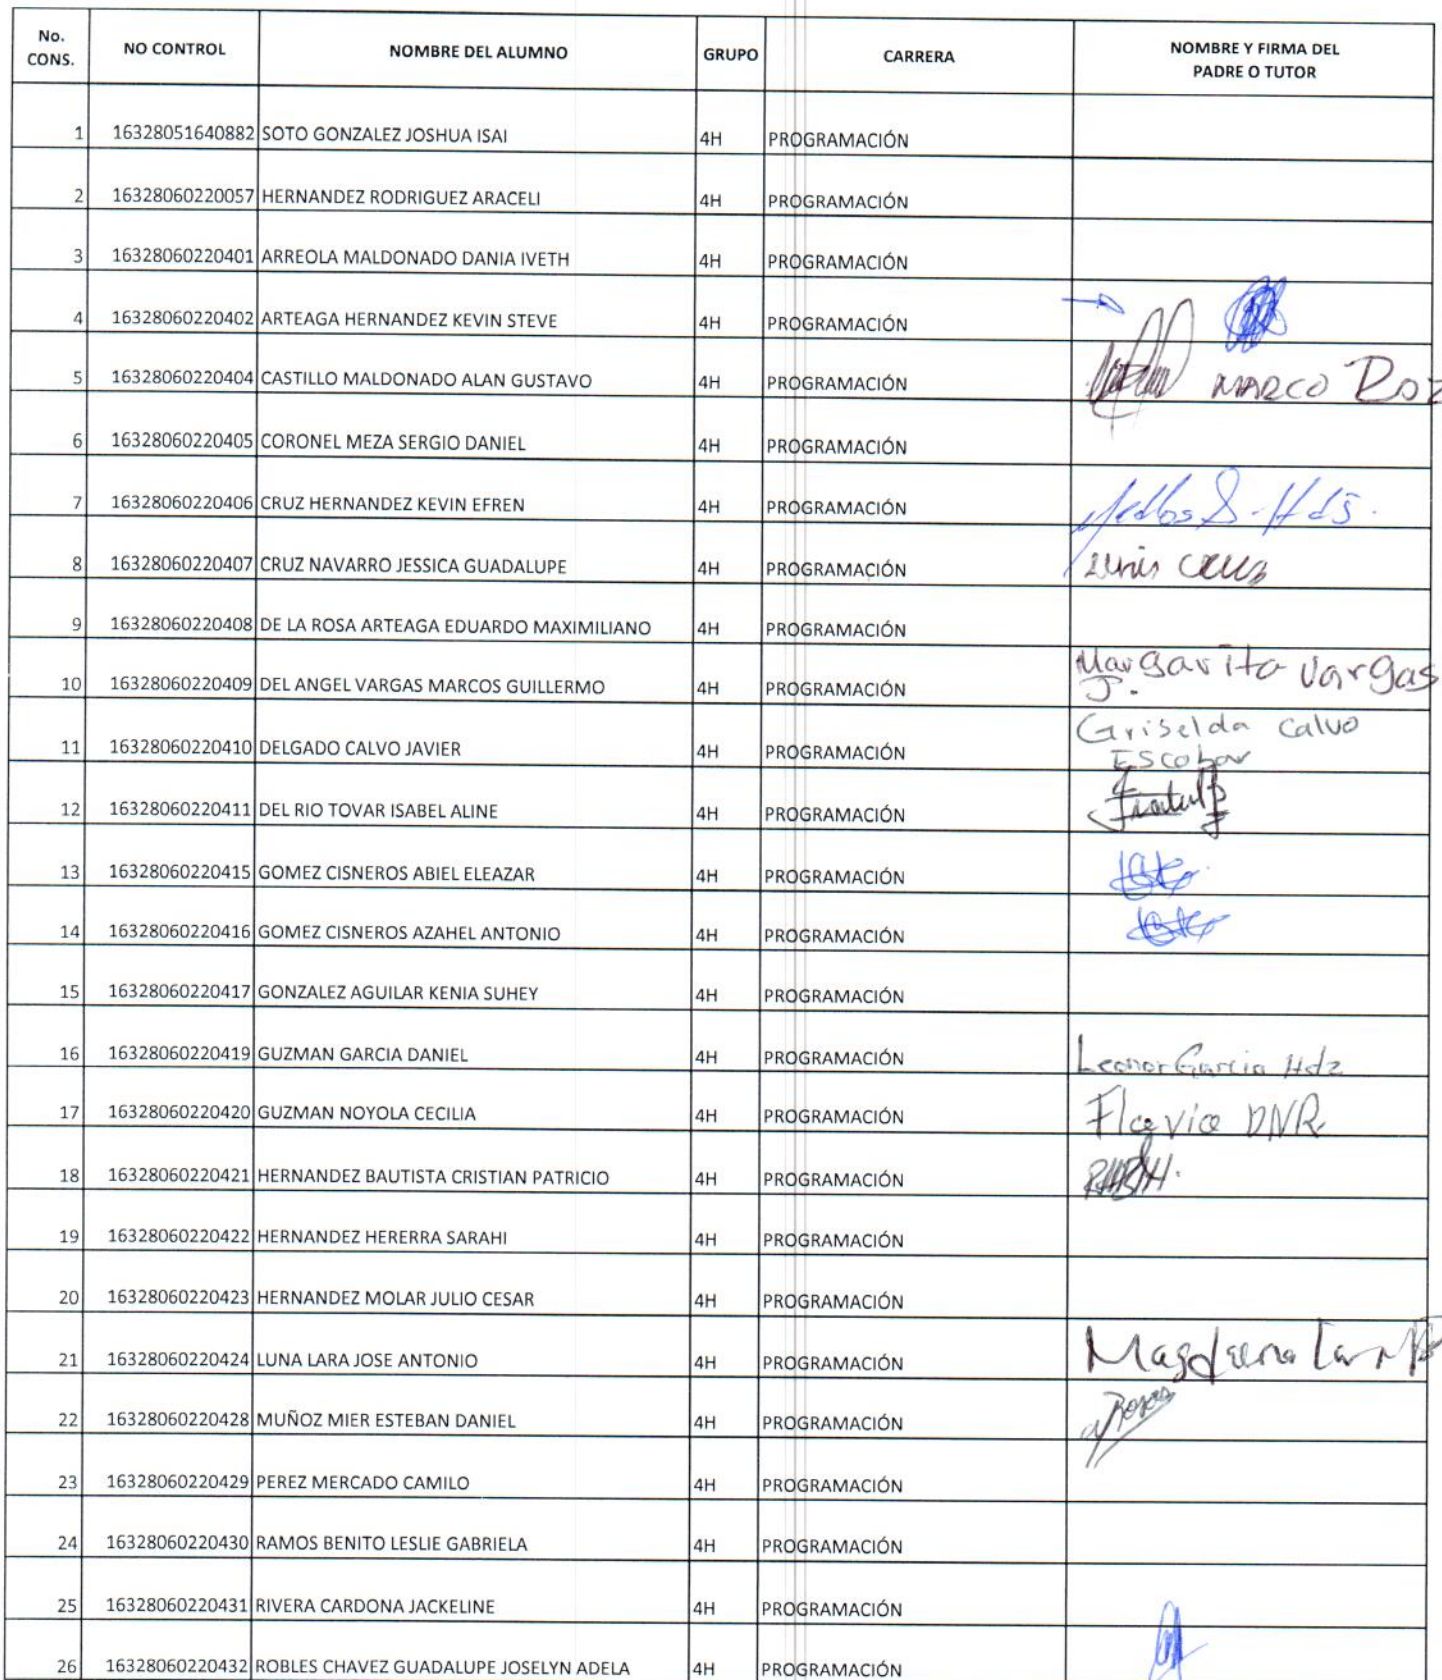 No. CONS. NO CONTROL NOMBRE DEL ALUMNO GRUPO CARRERA NOMBRE Y FIRMA DEL PADRE O TUTOR
1 16328051640882 SOTO GONZALEZ JOSHUA ISAI 4H PROGRAMACIÓN
2 16328060220057 HERNANDEZ RODRIGUEZ ARACELI 4H PROGRAMACIÓN
3 16328060220401 ARREOLA MALDONADO DANIA IVETH 4H PROGRAMACIÓN
4 16328060220402 ARTEAGA HERNANDEZ KEVIN STEVE 4H PROGRAMACIÓN
5 16328060220404 CASTILLO MALDONADO ALAN GUSTAVO 4H PROGRAMACIÓN MARCO
6 16328060220405 CORONEL MEZA SERGIO DANIEL 4H PROGRAMACIÓN
7 16328060220406 CRUZ HERNANDEZ KEVIN EFREN 4H PROGRAMACIÓN
8 16328060220407 CRUZ NAVARRO JESSICA GUADALUPE 4H PROGRAMACIÓN
9 16328060220408 DE LA ROSA ARTEAGA EDUARDO MAXIMILIANO 4H PROGRAMACIÓN
10 16328060220409 DEL ANGEL VARGAS MARCOS GUILLERMO 4H PROGRAMACIÓN Margarita Vargas J.
11 16328060220410 DELGADO CALVO JAVIER 4H PROGRAMACIÓN Griselda Calvo Escobar
12 16328060220411 DEL RIO TOVAR ISABEL ALINE 4H PROGRAMACIÓN
13 16328060220415 GOMEZ CISNEROS ABIEL ELEAZAR 4H PROGRAMACIÓN
14 16328060220416 GOMEZ CISNEROS AZAHEL ANTONIO 4H PROGRAMACIÓN
15 16328060220417 GONZALEZ AGUILAR KENIA SUHEY 4H PROGRAMACIÓN
16 16328060220419 GUZMAN GARCIA DANIEL 4H PROGRAMACIÓN Leonor Garcia Hdz
17 16328060220420 GUZMAN NOYOLA CECILIA 4H PROGRAMACIÓN Flavia DNR
18 16328060220421 HERNANDEZ BAUTISTA CRISTIAN PATRICIO 4H PROGRAMACIÓN
19 16328060220422 HERNANDEZ HERERRA SARAHI 4H PROGRAMACIÓN
20 16328060220423 HERNANDEZ MOLAR JULIO CESAR 4H PROGRAMACIÓN
21 16328060220424 LUNA LARA JOSE ANTONIO 4H PROGRAMACIÓN
22 16328060220428 MUÑOZ MIER ESTEBAN DANIEL 4H PROGRAMACIÓN
23 16328060220429 PEREZ MERCADO CAMILO 4H PROGRAMACIÓN
24 16328060220430 RAMOS BENITO LESLIE GABRIELA 4H PROGRAMACIÓN
25 16328060220431 RIVERA CARDONA JACKELINE 4H PROGRAMACIÓN
26 16328060220432 ROBLES CHAVEZ GUADALUPE JOSELYN ADELA 4H PROGRAMACIÓN